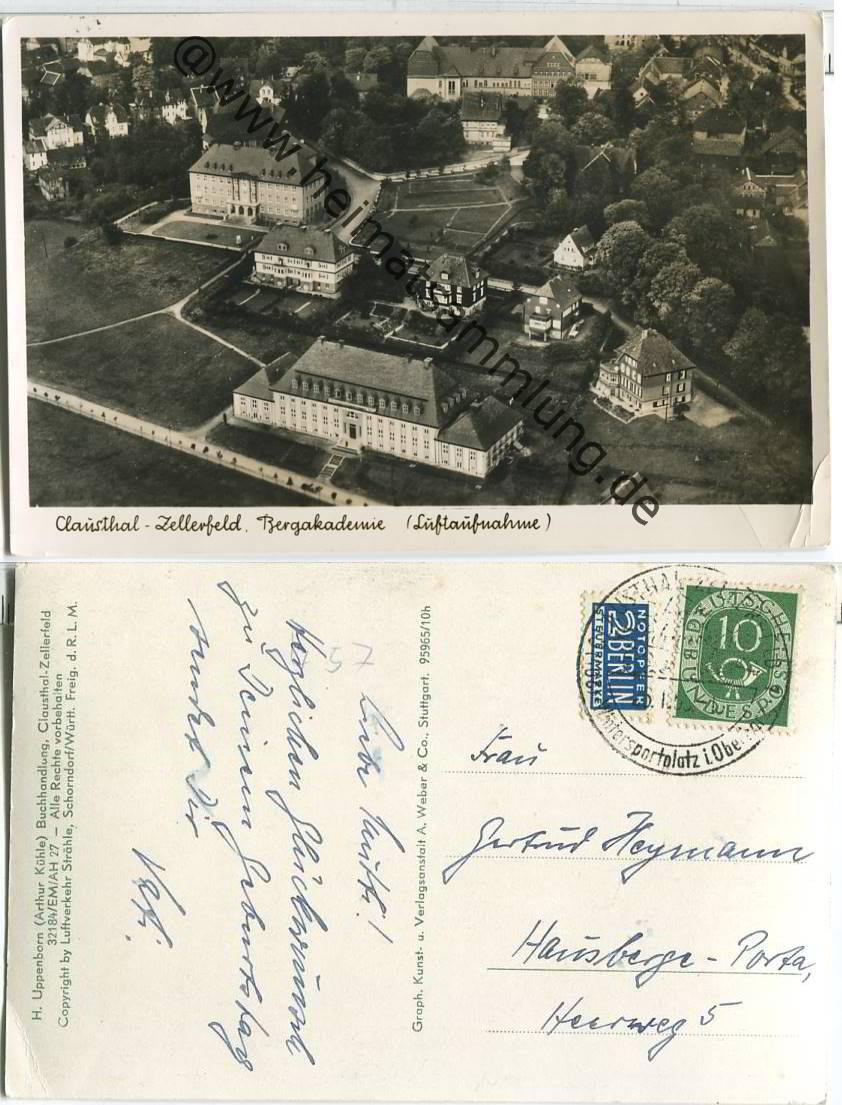 @www.heimatsammlung.de
Clausthal-Zellerfeld. Bergakademie (Luftaufnahme)
H. Uppenborn (Arthur Kühle) Buchhandlung, Clausthal-Zellerfeld
32184/EM/AH 27 — Alle Rechte vorbehalten
Copyright by Luftverkehr Strähle, Schorndorf/Württ. Freig. d. R.L.M.
57
Liebe Tante!
Herzlichen Glückwunsch
zu Deinem Geburtstag
sendet Dir
Graph. Kunst- u. Verlagsanstalt A. Weber & Co., Stuttgart. 95965/10h
NOTOPFER
2 BERLIN
STEUERMARKE
DEUTSCHE
BUNDESPOST
10
Wintersportplatz i. Ober
Frau
Gertrud Heymann
Hausberge-Porta,
Heerweg 5